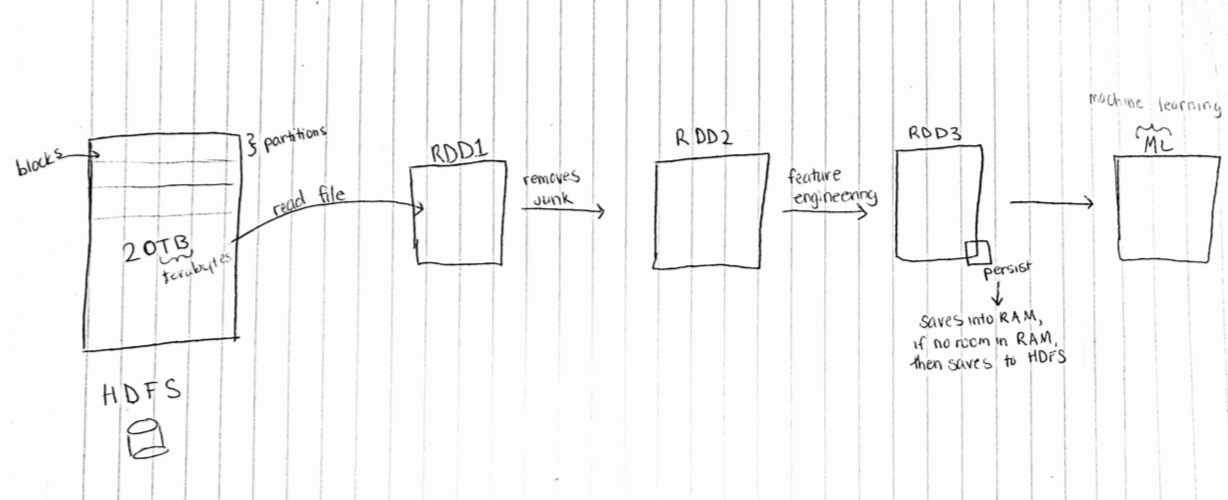 blocks
partitions
20TB
terabytes
HDFS
read file
RDD1
removes
junk
RDD2
feature
engineering
RDD3
persist
saves into RAM,
if no room in RAM,
then saves to HDFS
machine learning
ML